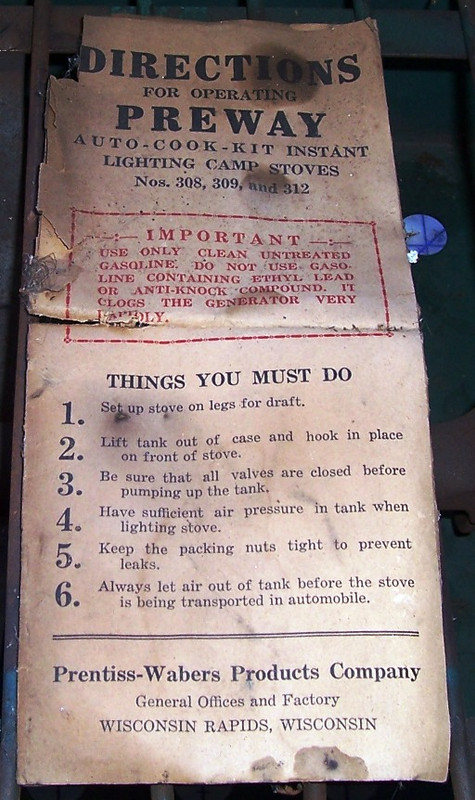 DIRECTIONS
FOR OPERATING
PREWAY
AUTO-COOK-KIT INSTANT
LIGHTING CAMP STOVES
Nos. 308, 309, and 312
IMPORTANT
USE ONLY CLEAN UNTREATED
GASOLINE. DO NOT USE GASO-
LINE CONTAINING ETHYL LEAD
OR ANTI-KNOCK COMPOUND. IT
CLOGS THE GENERATOR VERY
RAPIDLY.
THINGS YOU MUST DO
1. Set up stove on legs for draft.
2. Lift tank out of case and hook in place
on front of stove.
3. Be sure that all valves are closed before
pumping up the tank.
4. Have sufficient air pressure in tank when
lighting stove.
5. Keep the packing nuts tight to prevent
leaks.
6. Always let air out of tank before the stove
is being transported in automobile.
Prentiss-Wabers Products Company
General Offices and Factory
WISCONSIN RAPIDS, WISCONSIN